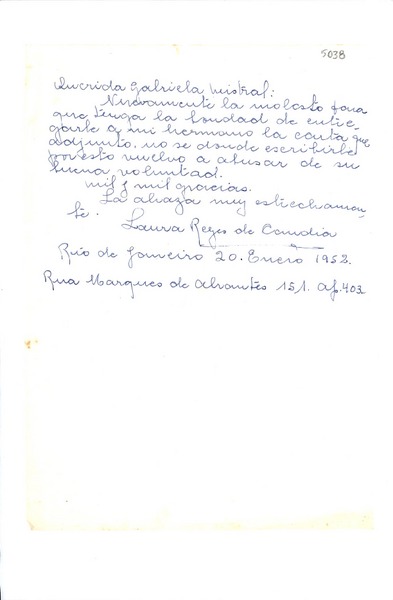 5038
Querida Gabriela Mistral:
Nuevamente la molesto para
que tenga la bondad de entre-
garle a mi hermano la carta que
adjunto. no se donde escribirle
por esto vuelvo a abusar de su
buena voluntad.
mil y mil gracias.
La abraza muy estrechamen-
te.
Laura Reyes de Candia
Río de Janeiro 20. Enero 1952.
Rua Marques de Abrantes 151. Ap. 403